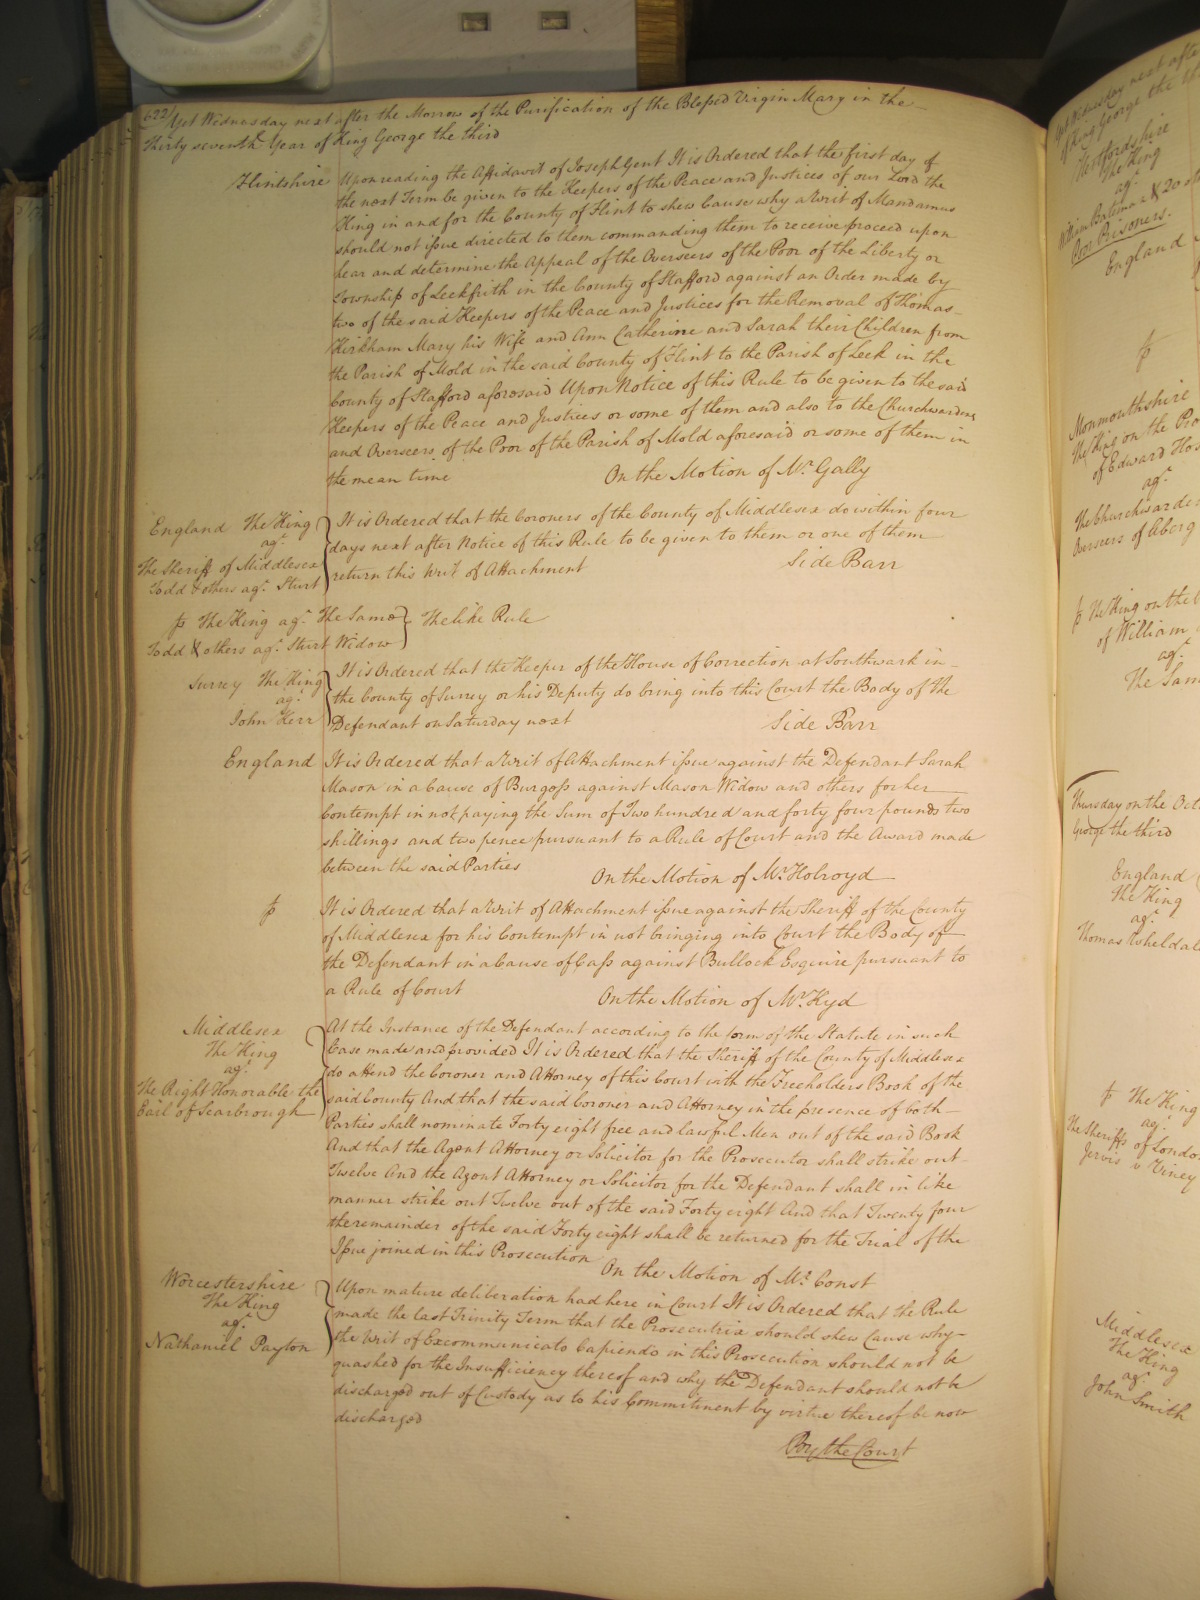 622/ Yet Wednesday next after the Morrow of the Purification of the Blessed Virgin Mary in the
Thirty seventh Year of King George the third
Flintshire Upon reading the Affidavit of Joseph Gent It is Ordered that the first day of
the next Term be given to the Keepers of the Peace and Justices of our Lord the
King in and for the County of Flint to shew Cause why a Writ of Mandamus
should not issue directed to them commanding them to receive proceed upon
hear and determine the Appeal of the Overseers of the Poor of the Liberty or
Township of Leekfrith in the County of Stafford against an Order made by
two of the said Keepers of the Peace and Justices for the Removal of Thomas
Kirkham Mary his Wife and Ann Catherine and Sarah their Children from
the Parish of Mold in the said County of Flint to the Parish of Leek in the
County of Stafford aforesaid Upon Notice of this Rule to be given to the said
Keepers of the Peace and Justices or some of them and also to the Churchwardens
and Overseers of the Poor of the Parish of Mold aforesaid or some of them in
the mean time On the Motion of Mr. Gally
England The King
agt.
The Sheriff of Middlesex
Todd & others agt. Sturt
It is Ordered that the Coroners of the County of Middlesex do within four
days next after Notice of this Rule to be given to them or one of them
return this Writ of Attachment Side Barr
The King agt. The Same
Todd & others agt. Sturt Widow
The like Rule
Surrey The King
agt.
John Kerr
It is Ordered that the Keeper of the House of Correction at Southwark in
the County of Surrey or his Deputy do bring into this Court the Body of the
Defendant on Saturday next Side Barr
England It is Ordered that a Writ of Attachment issue against the Defendant Sarah
Mason in a Cause of Burgoss against Mason Widow and others for her
Contempt in not paying the Sum of Two hundred and forty four pounds two
shillings and two pence pursuant to a Rule of Court and the Award made
between the said Parties On the Motion of Mr. Holroyd
It is Ordered that a Writ of Attachment issue against the Sheriff of the County
of Middlesex for his Contempt in not bringing into Court the Body of
the Defendant in a Cause of Cass against Bullock Esquire pursuant to
a Rule of Court On the Motion of Mr. Kyd
Middlesex
The King
agt.
The Right Honorable the
Earl of Scarbrough
At the Instance of the Defendant according to the form of the Statute in such
Case made and provided It is Ordered that the Sheriff of the County of Middlesex
do attend the Coroner and Attorney of this Court with the Freeholders Book of the
said County And that the said Coroner and Attorney in the presence of both
Parties shall nominate Forty eight free and lawful Men out of the said Book
And that the Agent Attorney or Solicitor for the Prosecutor shall strike out
Twelve And the Agent Attorney or Solicitor for the Defendant shall in like
manner strike out Twelve out of the said Forty eight And that Twenty four
the remainder of the said Forty eight shall be returned for the Trial of the
Issue joined in this Prosecution On the Motion of Mr. Const
Worcestershire
The King
agt.
Nathaniel Payton
Upon mature deliberation had here in Court It is Ordered that the Rule
made the last Trinity Term that the Prosecutrix should shew Cause why
the Writ of Excommunicato Capiendo in this Prosecution should not be
quashed for the Insufficiency thereof and why the Defendant should not be
discharged out of Custody as to his Commitment by virtue thereof be now
discharged
By the Court
Yet Wednesday next after
of King George the th
The King
agt.
William Bateman & 20 oth
Prisoners.
England
Monmouthshire
The King on the Pro
of Edward Hos
agt.
The Churchwarden
Overseers of Aberg
The King on the
of William
agt.
The Sam
Thursday on the Oct
George the third
England
The King
agt.
Thomas Wheldal
The King
agt.
The Sheriffs of London
Jervis v Viney
Middlesex
The King
agt.
John Smith